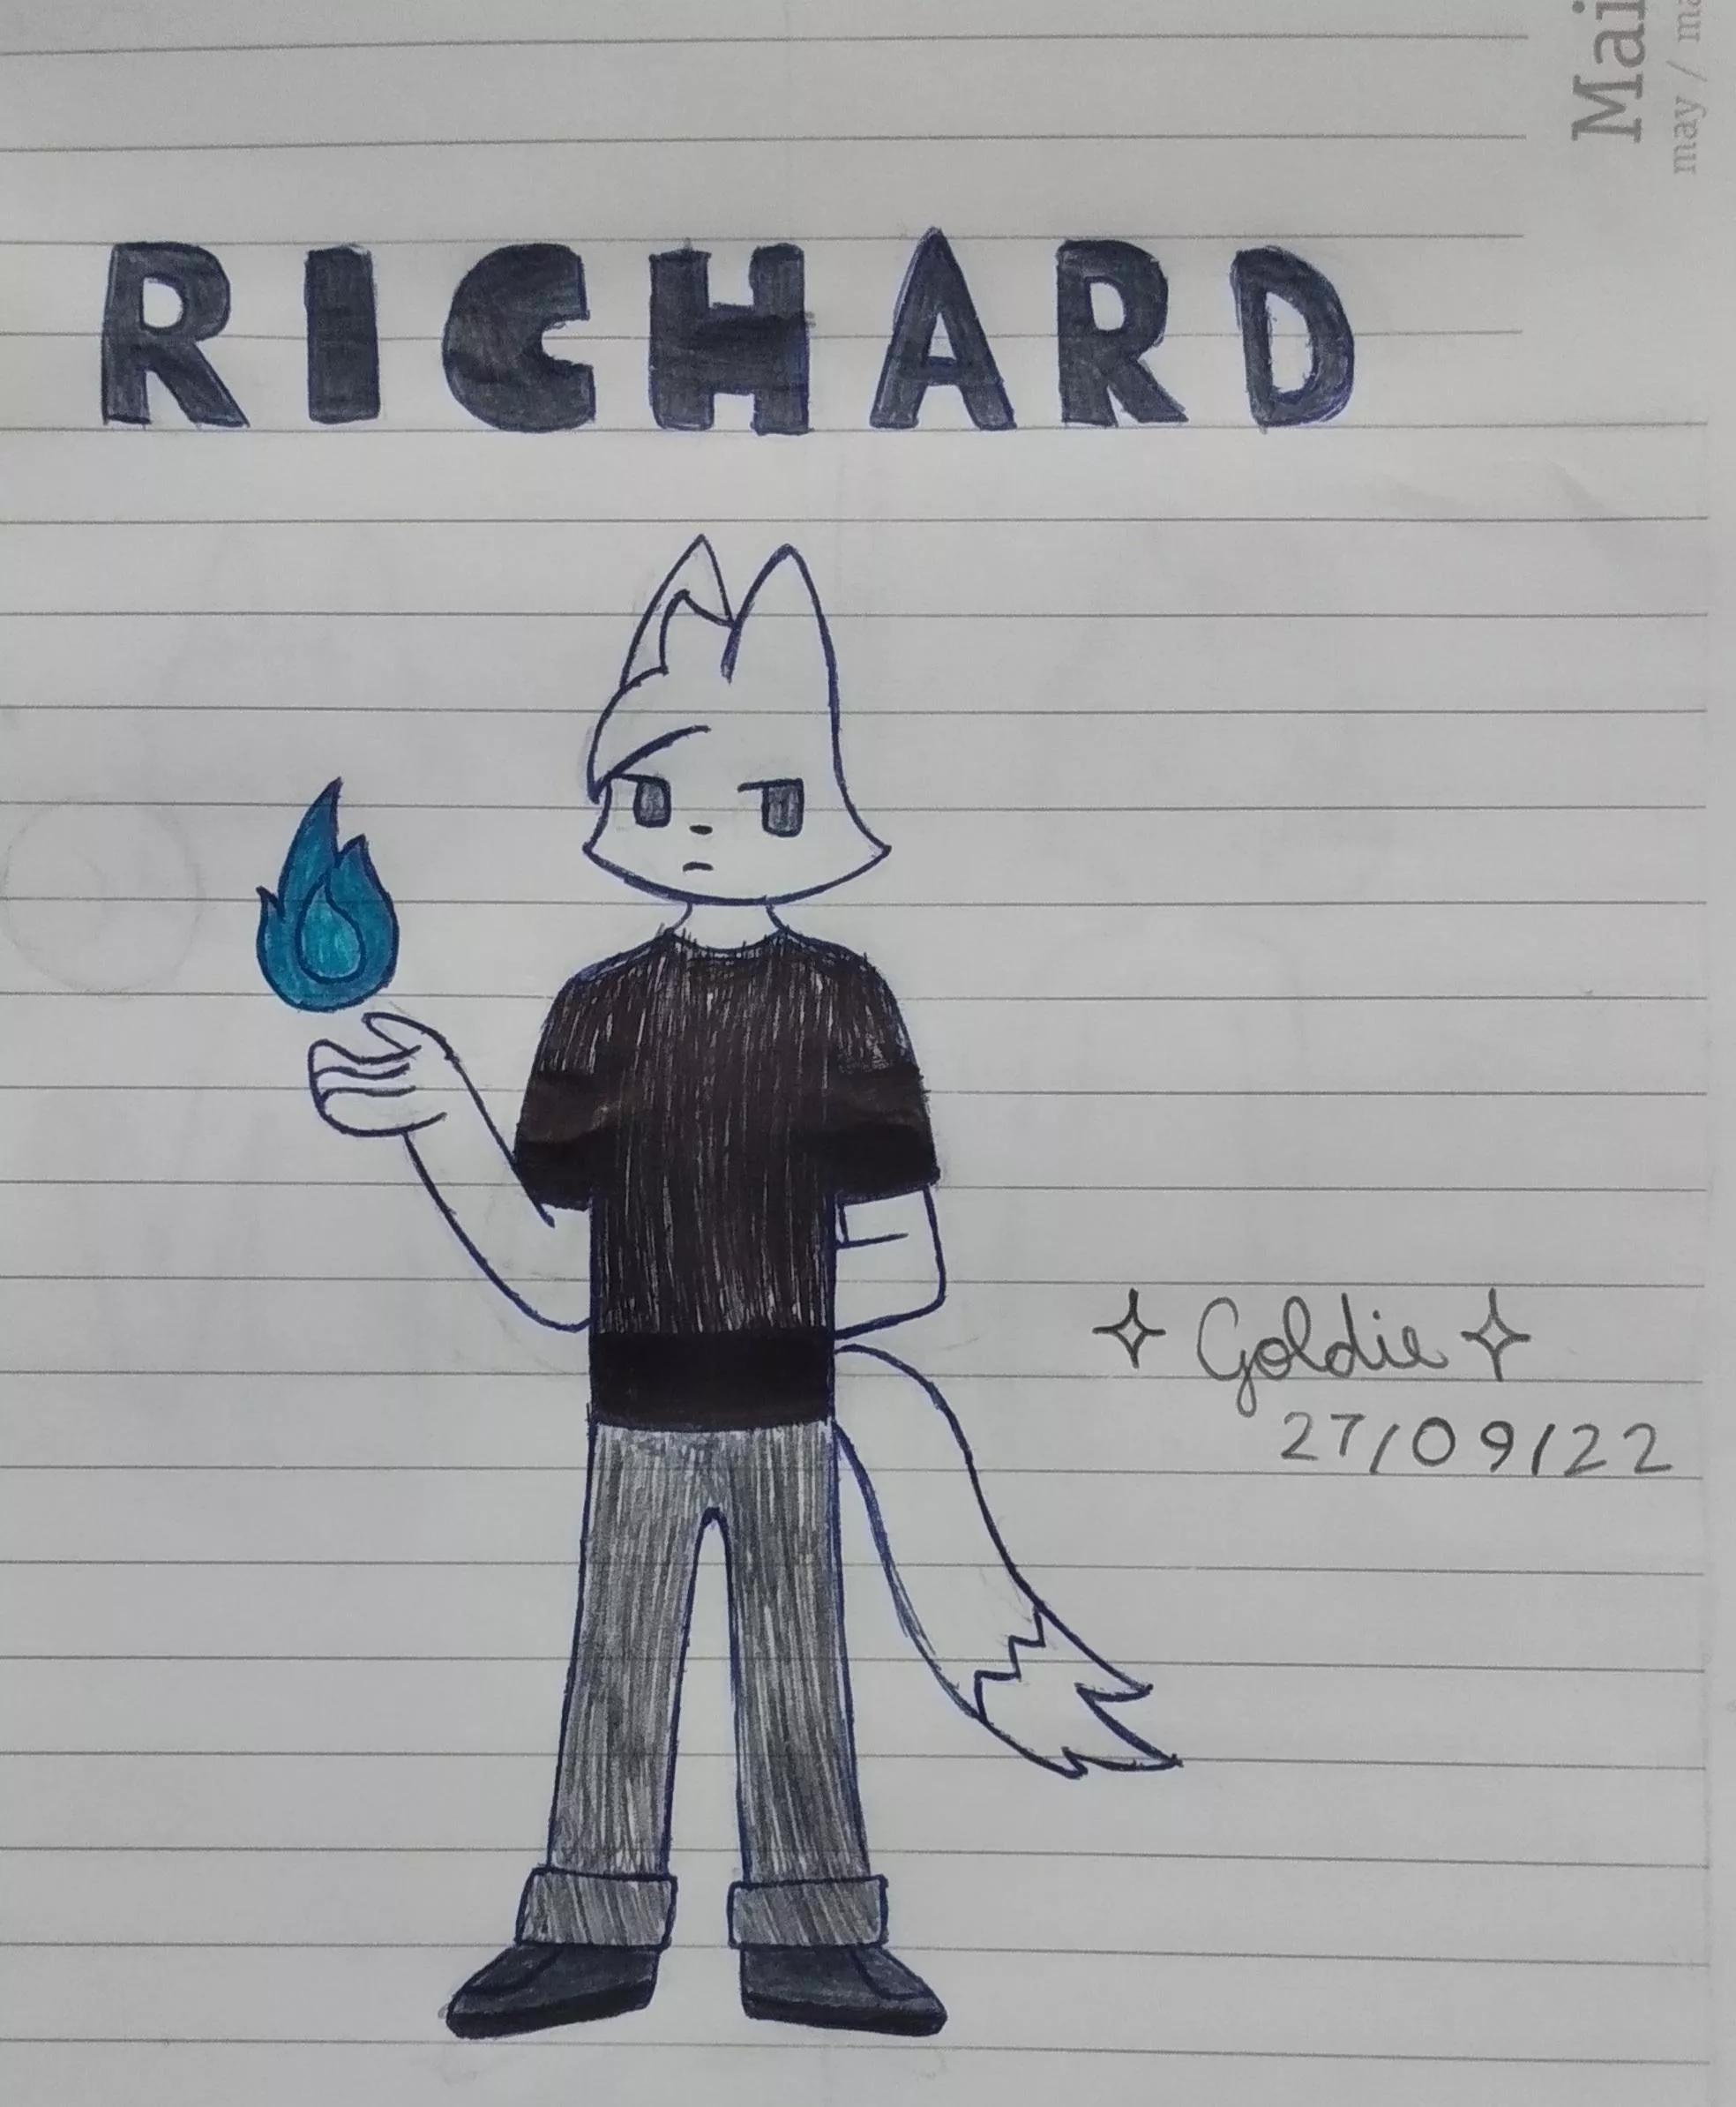 Mai
may / ma
RICHARD
Goldie
27/09/22